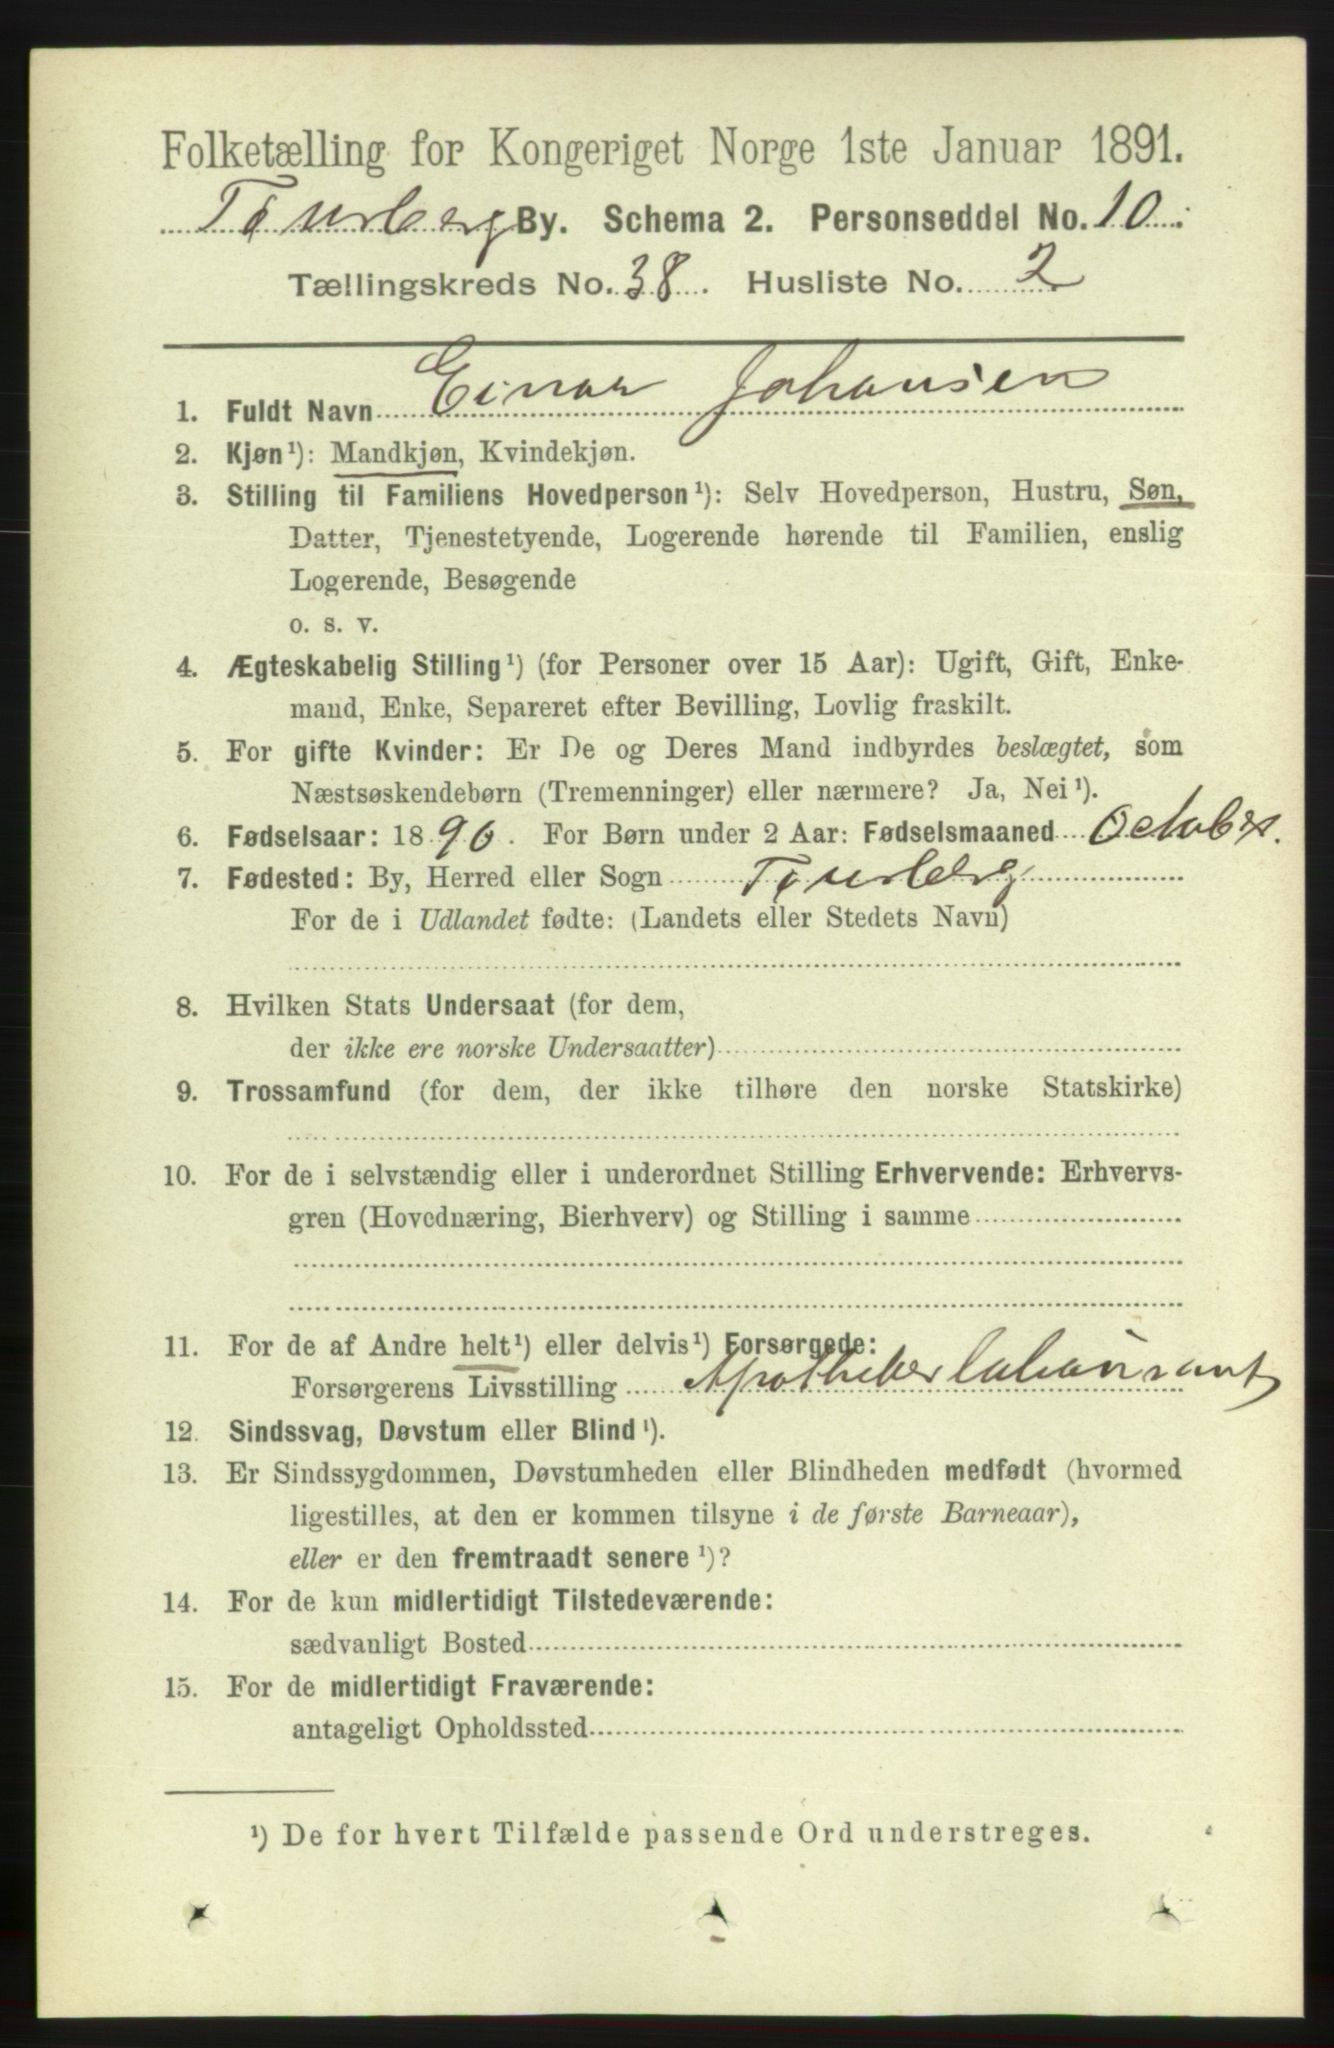 Folketælling for Kongeriget Norge 1ste Januar 1891.
Tønsberg By. Schema 2. Personseddel No. 10.
Tællingskreds No. 38. Husliste No. 2
1. Fuldt Navn Einar Johansen
2. Kjøn¹): Mandkjøn, Kvindekjøn.
3. Stilling til Familiens Hovedperson¹): Selv Hovedperson, Hustru, Søn,
Datter, Tjenestetyende, Logerende hørende til Familien, enslig
Logerende, Besøgende
o. s. v.
4. Ægteskabelig Stilling¹) (for Personer over 15 Aar): Ugift, Gift, Enke-
mand, Enke, Separeret efter Bevilling, Lovlig fraskilt.
5. For gifte Kvinder: Er De og Deres Mand indbyrdes beslægtet, som
Næstsøskendebørn (Tremenninger) eller nærmere? Ja, Nei¹).
6. Fødselsaar: 1890. For Børn under 2 Aar: Fødselsmaaned October.
7. Fødested: By, Herred eller Sogn Tønsberg
For de i Udlandet fødte: (Landets eller Stedets Navn)
8. Hvilken Stats Undersaat (for dem,
der ikke ere norske Undersaatter)
9. Trossamfund (for dem, der ikke tilhøre den norske Statskirke)
10. For de i selvstændig eller i underordnet Stilling Erhvervende: Erhvervs-
gren (Hovednæring, Bierhverv) og Stilling i samme
11. For de af Andre helt¹) eller delvis¹) Forsørgede:
Forsørgerens Livsstilling Apotheker
12. Sindssvag, Døvstum eller Blind¹).
13. Er Sindssygdommen, Døvstumheden eller Blindheden medfødt (hvormed
ligestilles, at den er kommen tilsyne i de første Barneaar),
eller er den fremtraadt senere¹)?
14. For de kun midlertidigt Tilstedeværende:
sædvanligt Bosted
15. For de midlertidigt Fraværende:
antageligt Opholdssted
¹) De for hvert Tilfælde passende Ord understreges.